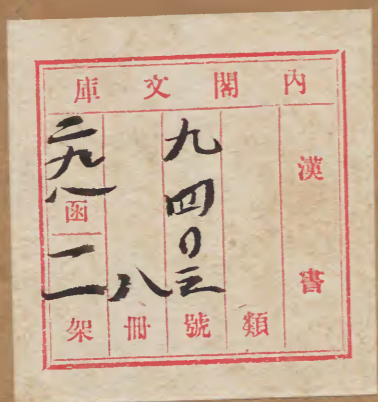 內閣文庫
漢書
類
九四〇三號
八冊
二九八函
架